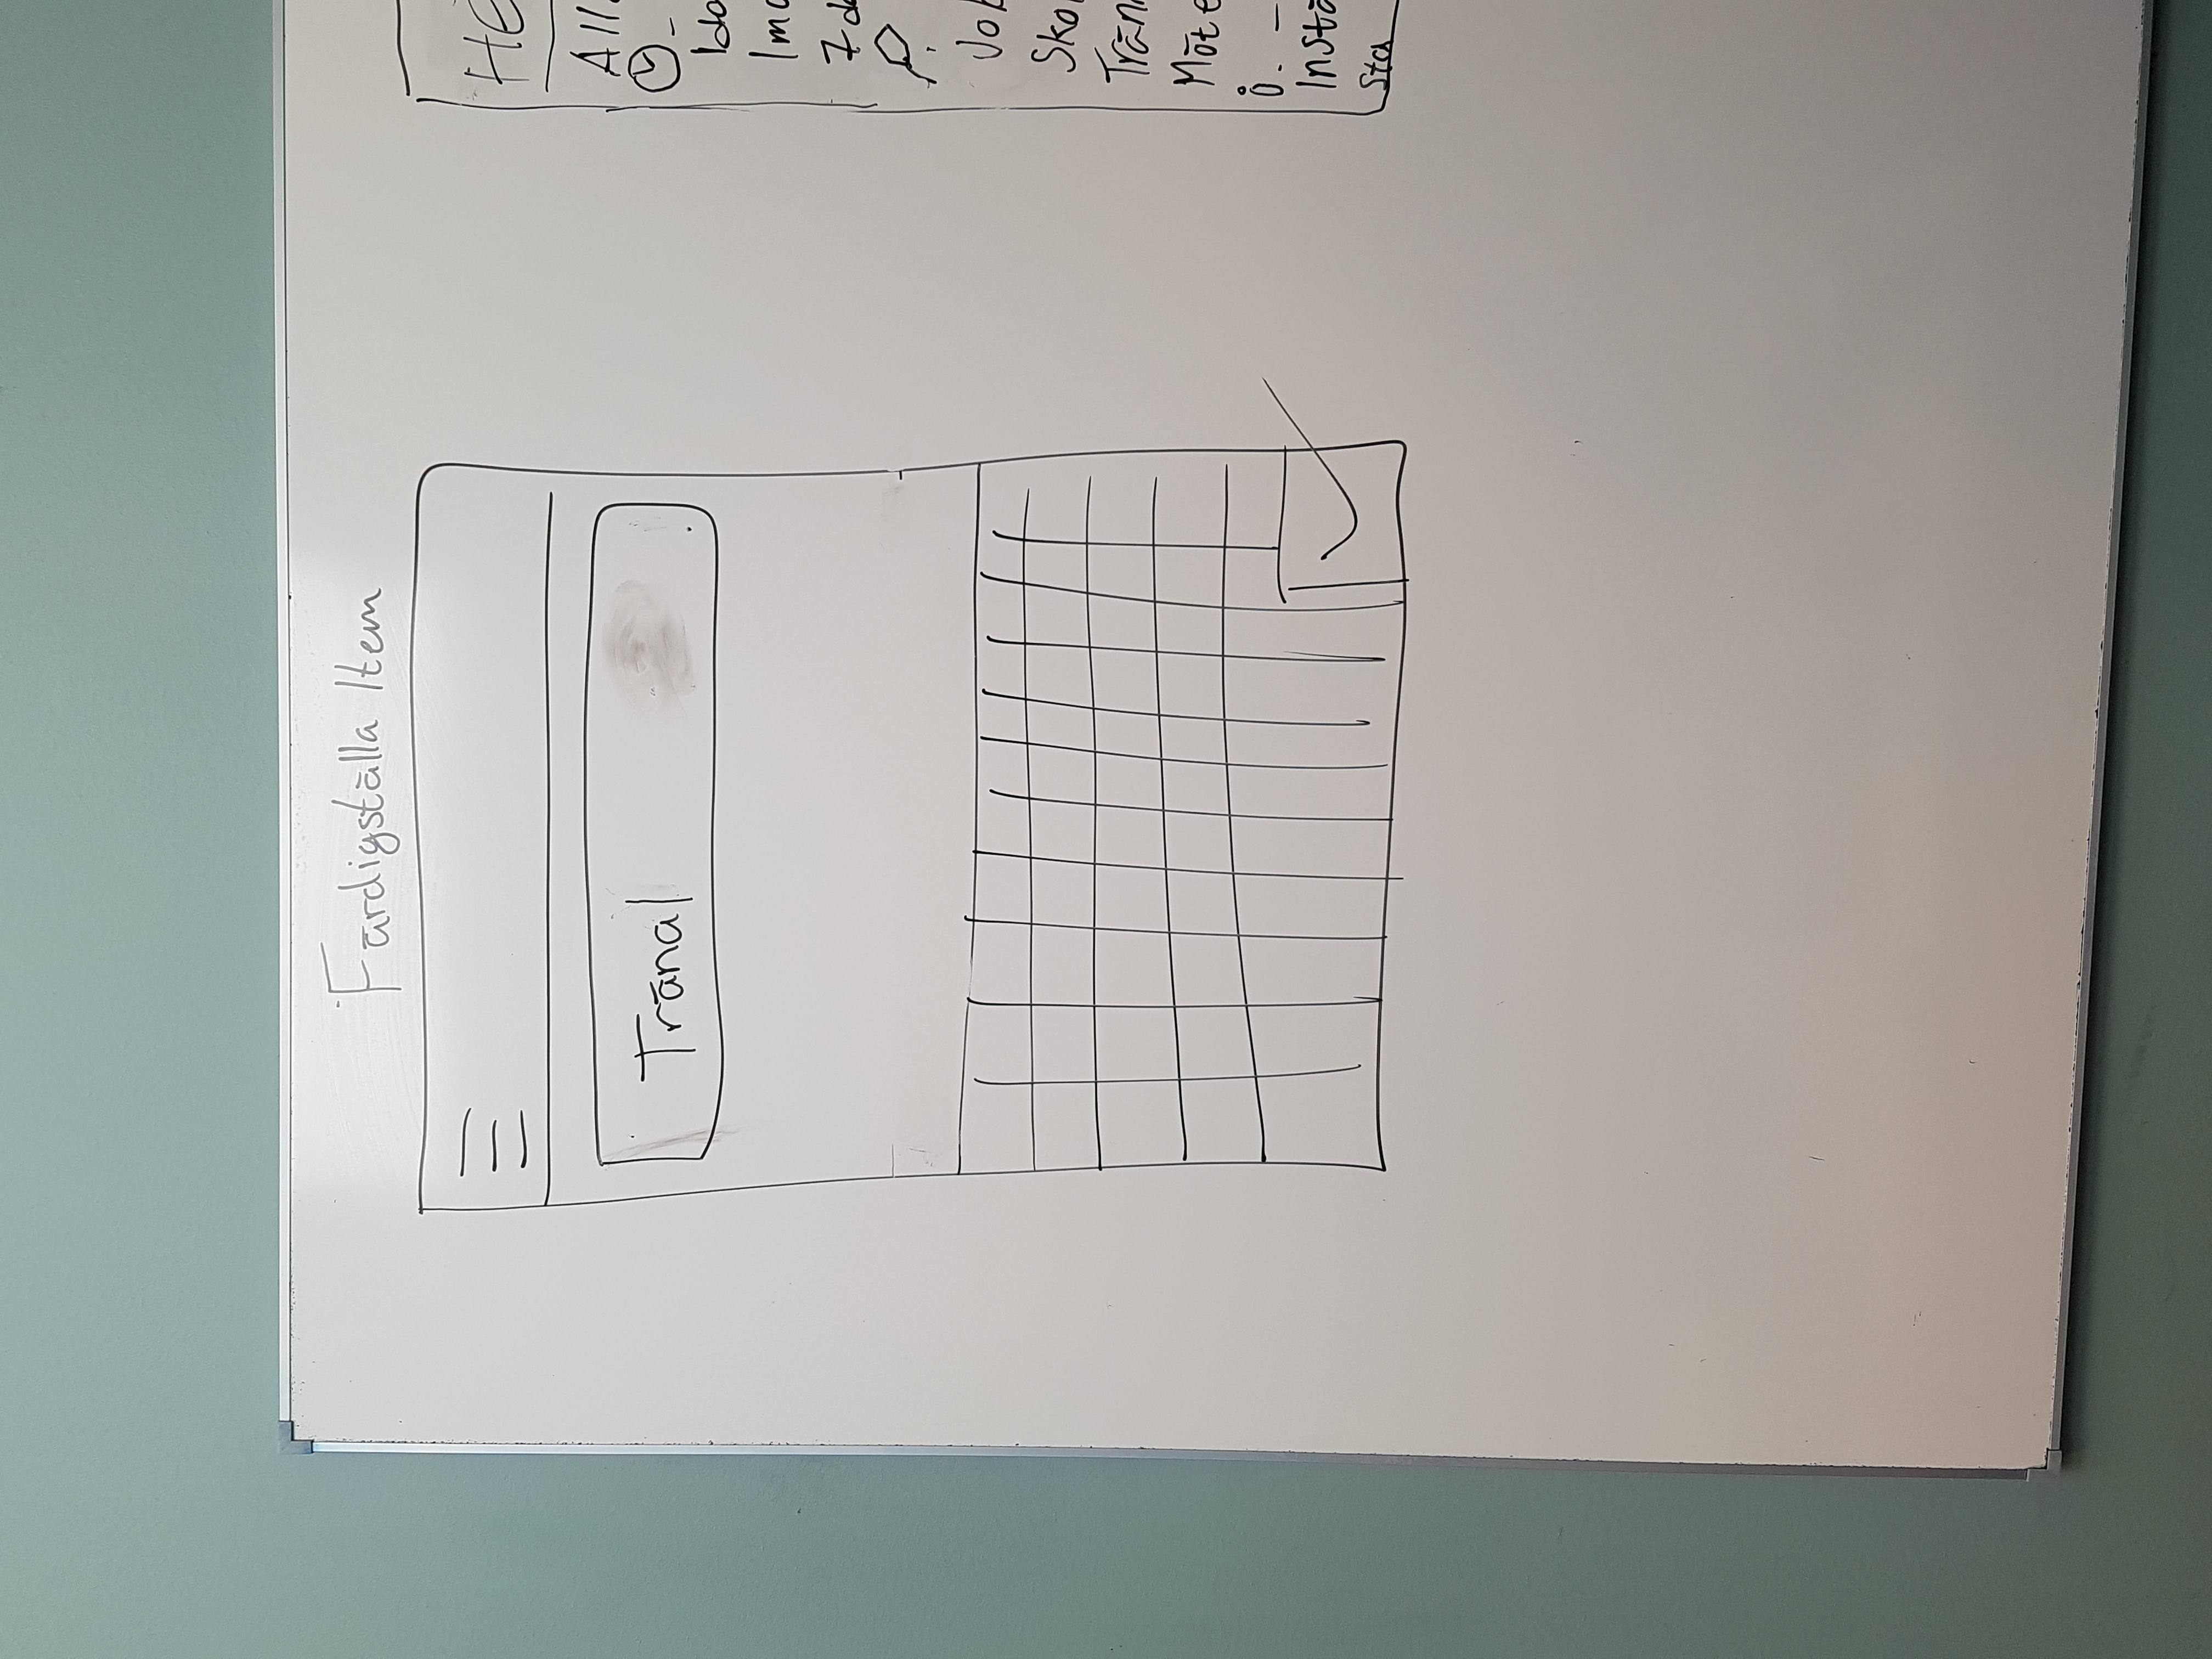 Färdigställa Item
Träna|
He
All
Ida
Imo
7 da
Job
Sko
Trän
Möte
Instä
sta